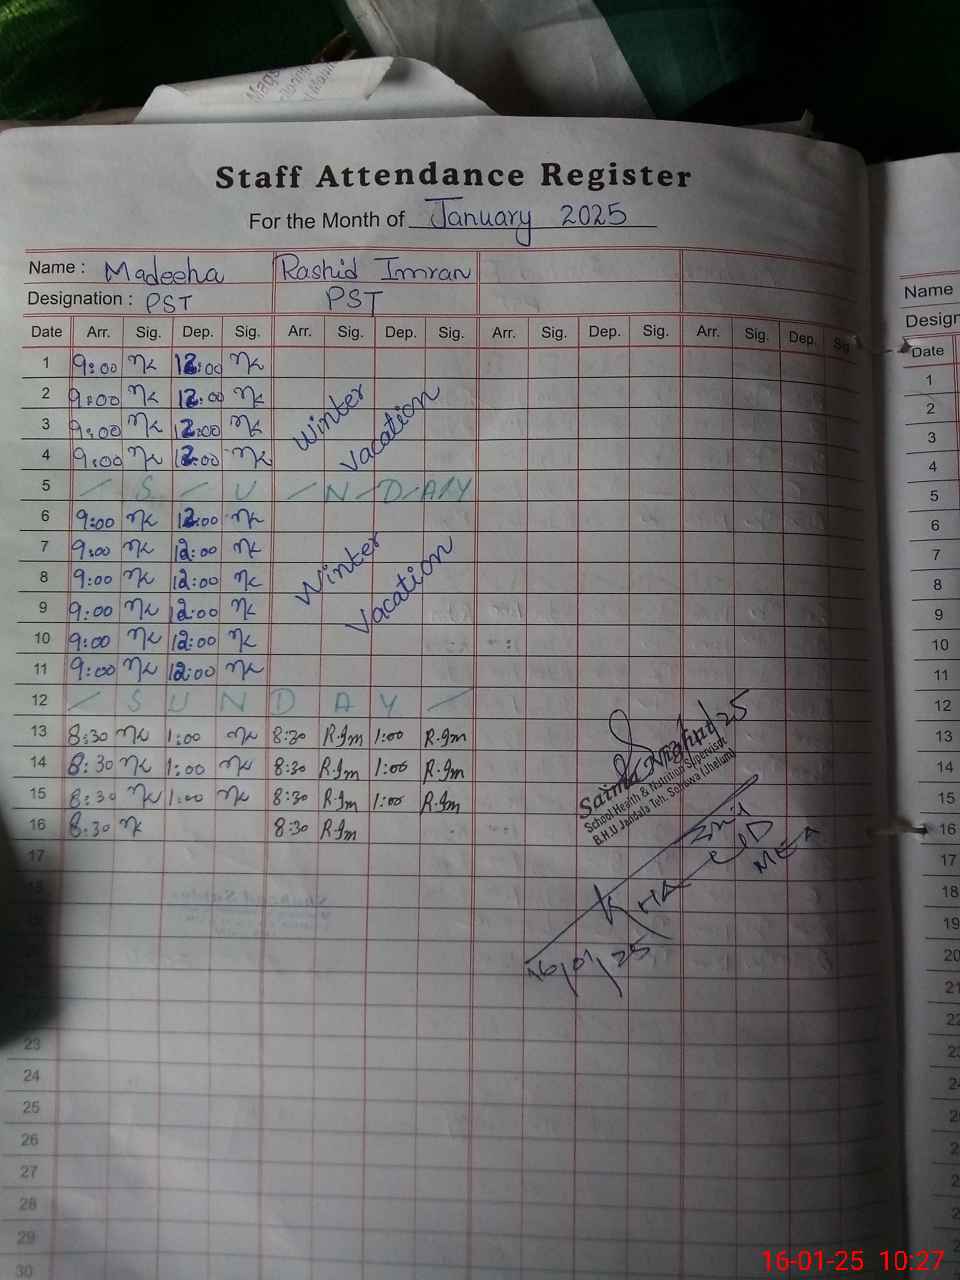 Staff Attendance Register
For the Month of January 2025
Name : Madeeha Rashid Imran
Designation : PST PST
Date Arr. Sig. Dep. Sig. Arr. Sig. Dep. Sig. Arr. Sig. Dep. Sig. Arr. Sig. Dep. Sig
1 9:00 12:00
2 9:00 12:00 Winter
3 9:00 12:00 Vacation
4 9:00 12:00
5 S U N D A Y
6 9:00 12:00
7 9:00 12:00 Winter
8 9:00 12:00 Vacation
9 9:00 12:00
10 9:00 12:00
11 9:00 12:00
12 S U N D A Y
13 8:30 1:00 8:30 R.Im 1:00 R.Im
14 8:30 1:00 8:30 R.Im 1:00 R.Im
15 8:30 1:00 8:30 R.Im 1:00 R.Im
16 8:30 8:30 R.Im
17
23
24
25
26
27
28
29
30
Saima
School Health & Nutrition Supervisor
B.H.U Jandala Teh. Sohawa (Jhelum)
MEA
16/01/25
Name
Design
Date
1
2
3
4
5
6
7
8
9
10
11
12
13
14
15
16
17
18
19
20
21
22
16-01-25 10:27